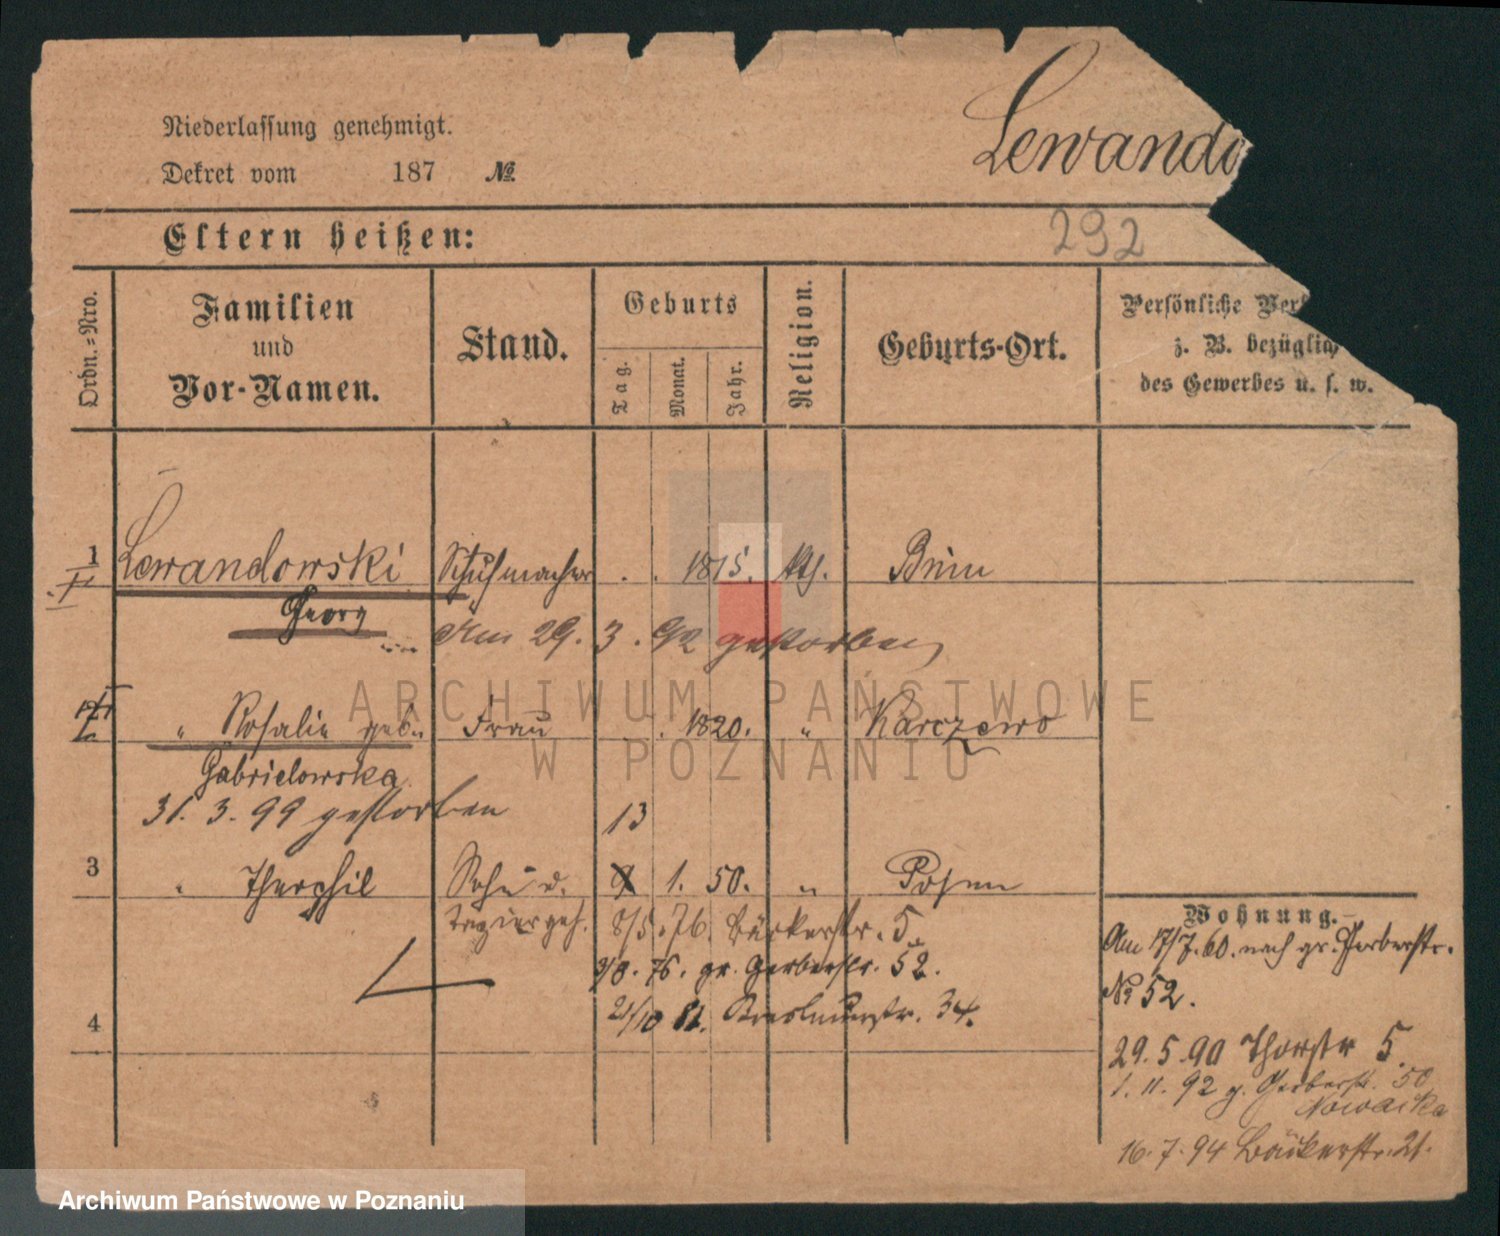 Niederlassung genehmigt.
Dekret vom 187 №
Lewando
292
Eltern heißen:
Ordn.=Nro.
Familien
und
Vor-Namen.
Stand.
Geburts
Tag.
Monat.
Jahr.
Religion.
Geburts-Ort.
Persönliche Ver
z. B. bezüglich
des Gewerbes u. s. w.
1 Lewandowski Schuhmacher . . 1815. kth. Bnin
Georg
Am 29. 3. 92 gestorben
2 " Rosalie geb. Frau . . 1820. " Karczewo
Gabrielowska
31. 3. 99 gestorben
13
3 " Theophil Sohn d. 1. 50. " Posen
8/5. 76. Bäckerstr. 5.
3/8. 76. gr. Gerberstr. 52.
21/10 81. 34.
4
Wohnung.
Am 17/7. 60. nach gr. Gerberstr.
№ 52.
29. 5. 90 Thorstr 5.
1. 11. 92 g. Gerberstr. 50
Nowacka
16. 7. 94 Bäckerstr. 21.
ARCHIWUM PAŃSTWOWE
W POZNANIU
Archiwum Państwowe w Poznaniu